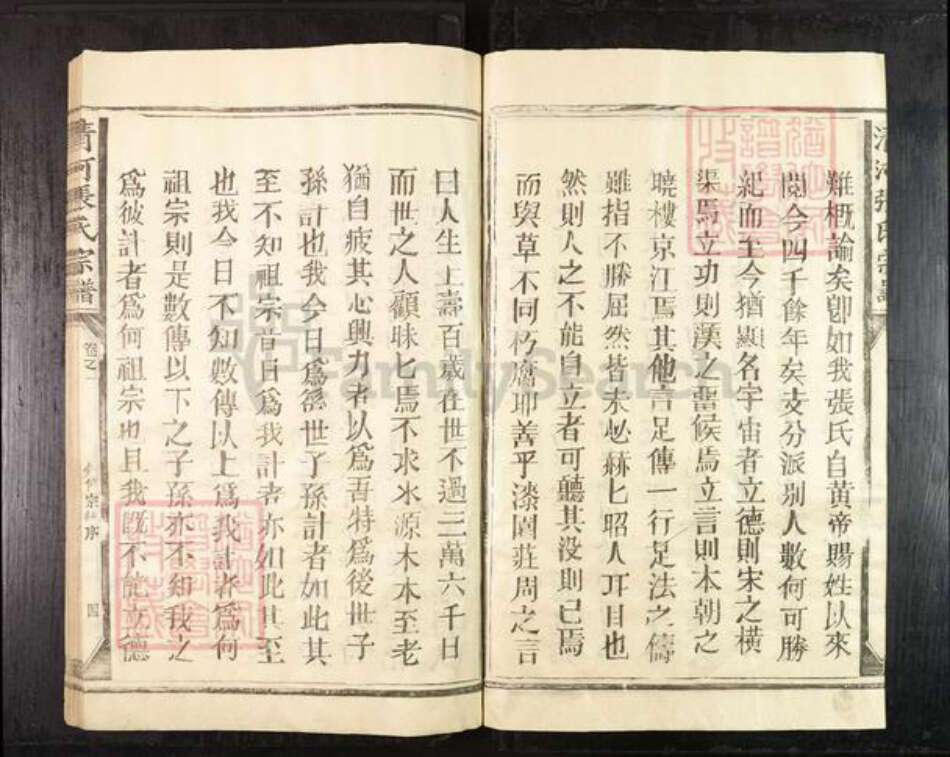 難概論矣卽如我張氏自黃帝賜姓以來
閱今四千餘年矣支分派別人數何可勝
紀而至今猶顯名宇宙者立德則宋之橫
渠焉立功則漢之畱候焉立言則本朝之
曉樓京江焉其他言足傳一行足法之儔
雖指不勝屈然皆未必赫匕昭人耳目也
然則人之不能自立者可聽其没則已焉
而與草不同朽腐耶善乎漆園莊周之言
曰人生上壽百歲在世不過三萬六千日
而世之人顧昧匕焉不求水源木本至老
猶自疲其心與力者以爲吾特爲後世子
孫計也我今日爲後世子孫計者如此其
至不知祖宗昔日爲我計者亦如此其至
也我今日不知數傳以上爲我計者爲何
祖宗則是數傳以下之子孫亦不知我之
爲彼計者爲何祖宗也且我既不能立德
清河張氏宗譜
卷之一
宗 序
四
清河張氏宗譜
FamilySearch